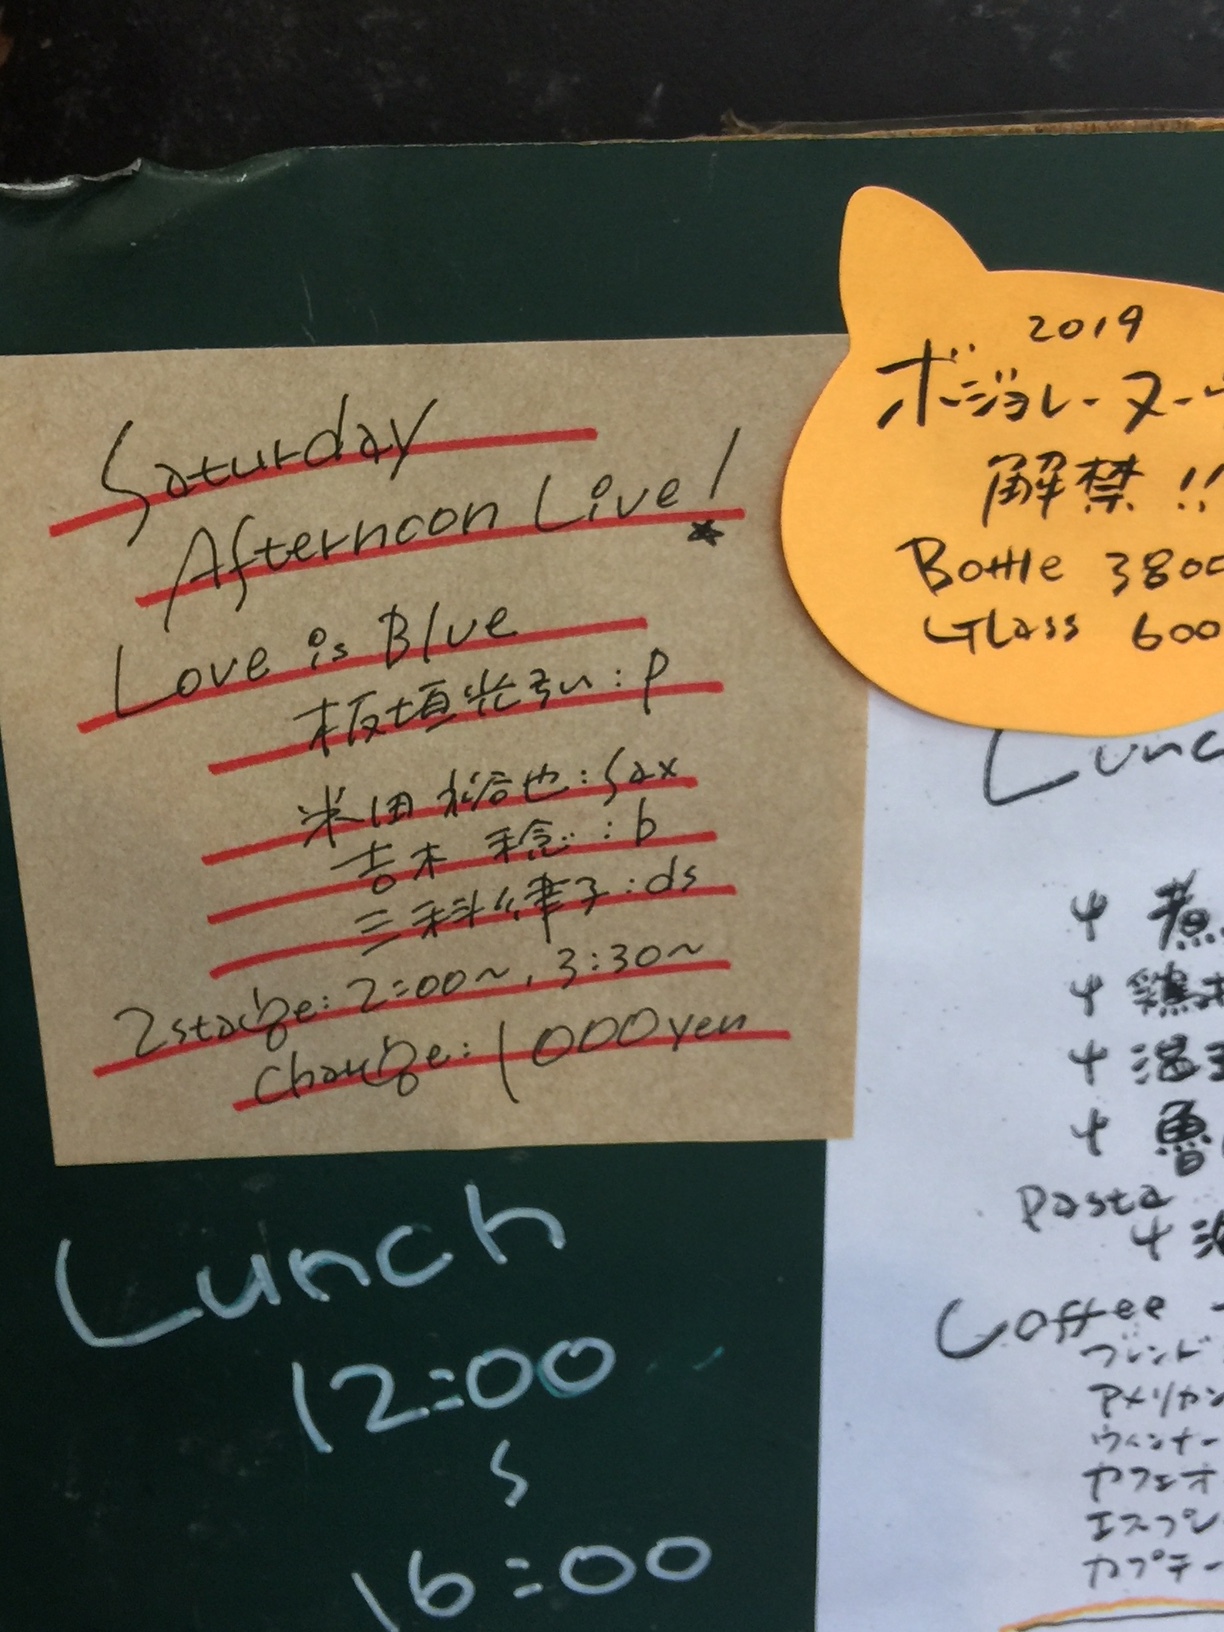 Saturday
Afternoon Live!
Love is Blue
板垣光弘:p
米田裕也:Sax
吉木 稔:b
三科律子:ds
2stage:2:00~,3:30~
charge:1000yen
Lunch
12:00
16:00
2019
ボージョレーヌー
解禁!!
Bottle 380
Glass 600
Lunc
煮
鶏
温
魯
Pasta
Coffee
ブレンド
アメリカン
ウィンナー
カフェオ
エスプレ
カプチー